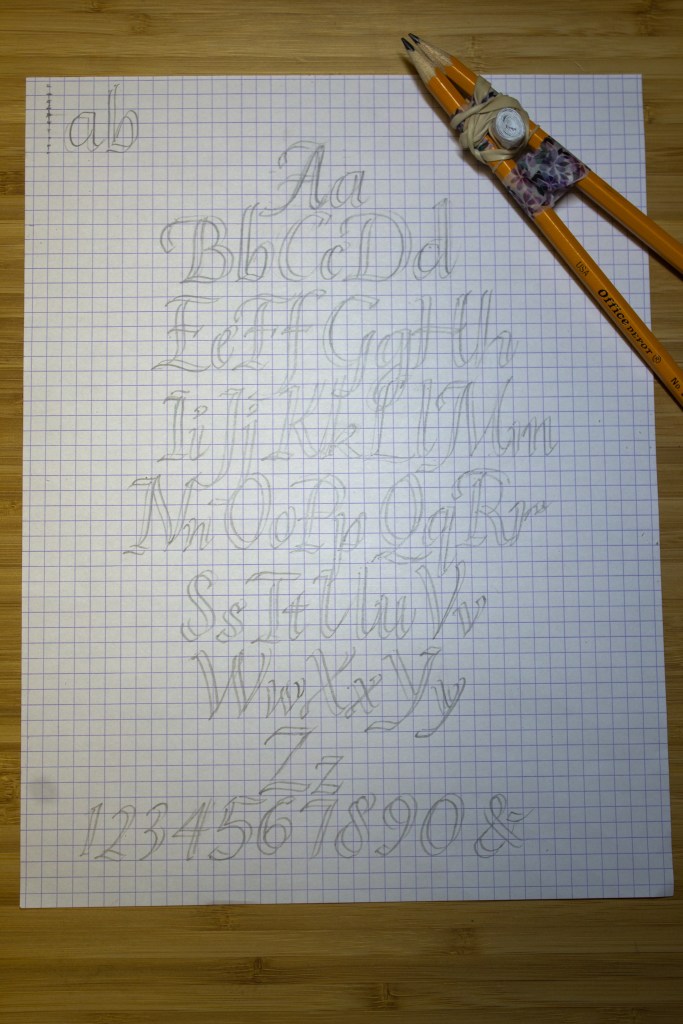 ab
Aa
BbCcDd
EeFfGgHh
IiJjKkLlMm
NnOoPpQqRr
SsTtUuVv
WwXxYy
Zz
1234567890&
USA Office DEPOT® No.